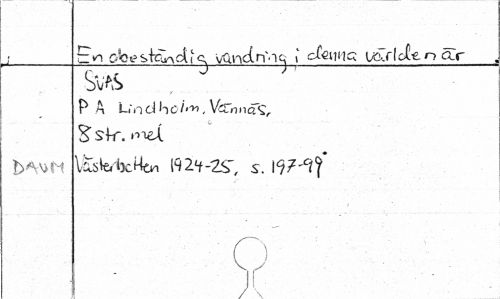 En obeständig vandring i denna världen är
SVAS
P A Lindholm, Vännäs,
8 str. mel
DAUM Västerbotten 1924-25, s. 197-99